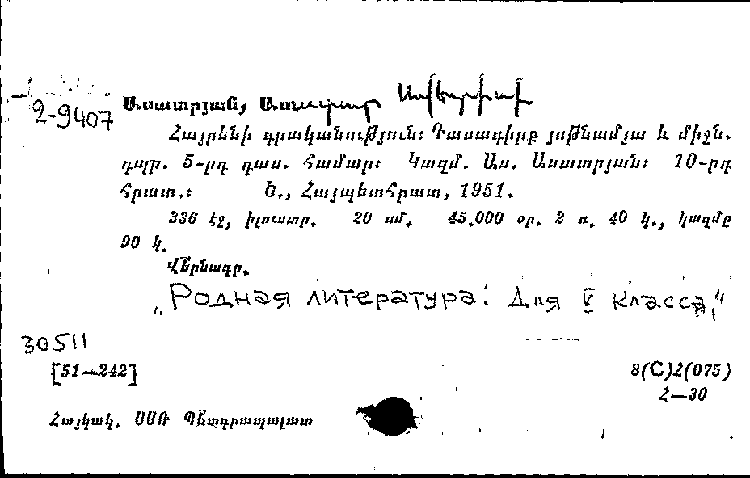 2-9407
Ասատրյան, Ասատուր Ավետիսի
Հայրենի գրականություն: Դասագիրք յոթնամյա և միջն.
դպր. 5-րդ դաս. համար: Կազմ. Աս. Ասատրյան: 10-րդ
հրատ.: Ե., Հայպետհրատ, 1951.
336 էջ, իլուստր. 20 սմ. 45.000 օր. 2 ռ. 40 կ., կազմը
90 կ.
Վերնագր.
„Родная литература: Для V класса„"
30511
[51—242]
8(С)Հ(075)
Հ—30
Հայկակ. ՍՍՌ Պետգրապալատ